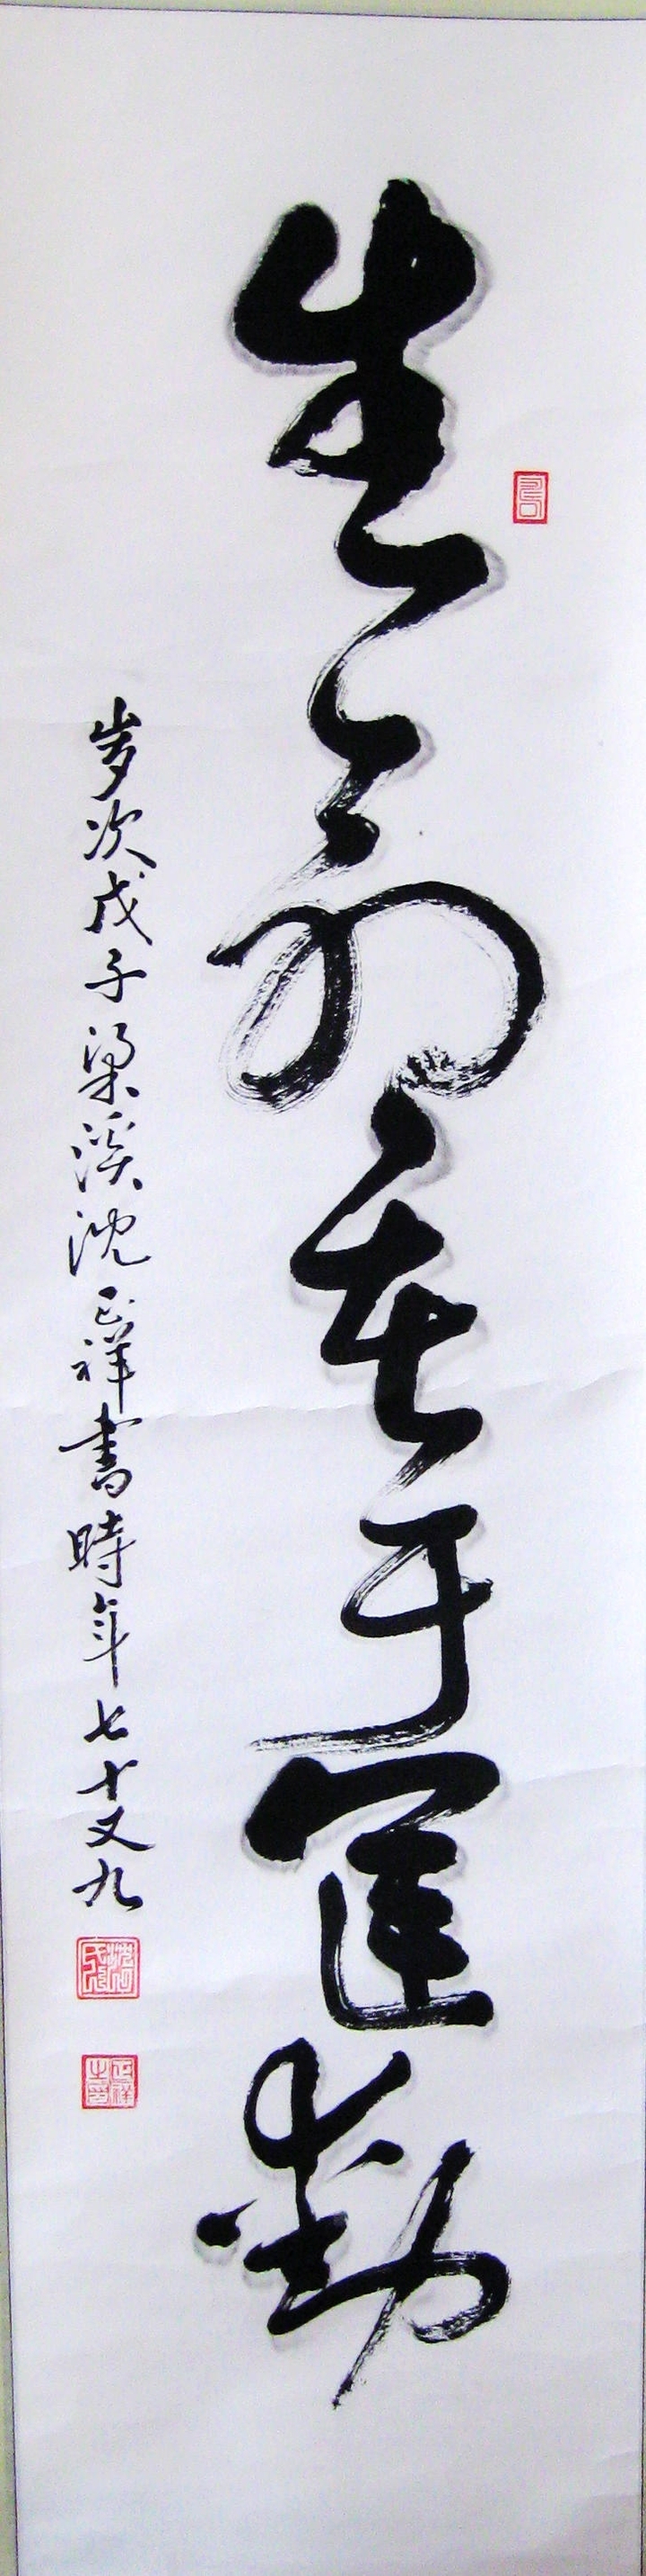 生命在于运动
岁次戊子梁溪沈正祥書時年七十又九